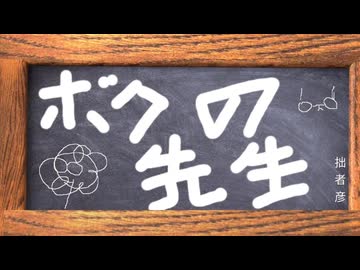 ボクの
先生
拙者彦